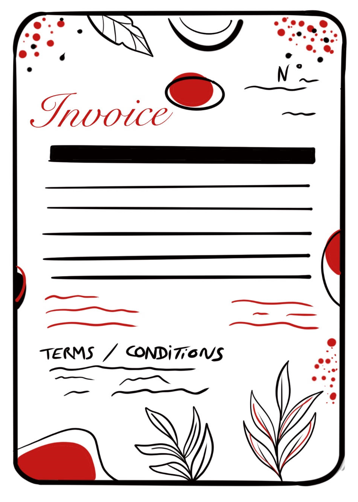 N°
Invoice
TERMS / CONDITIONS